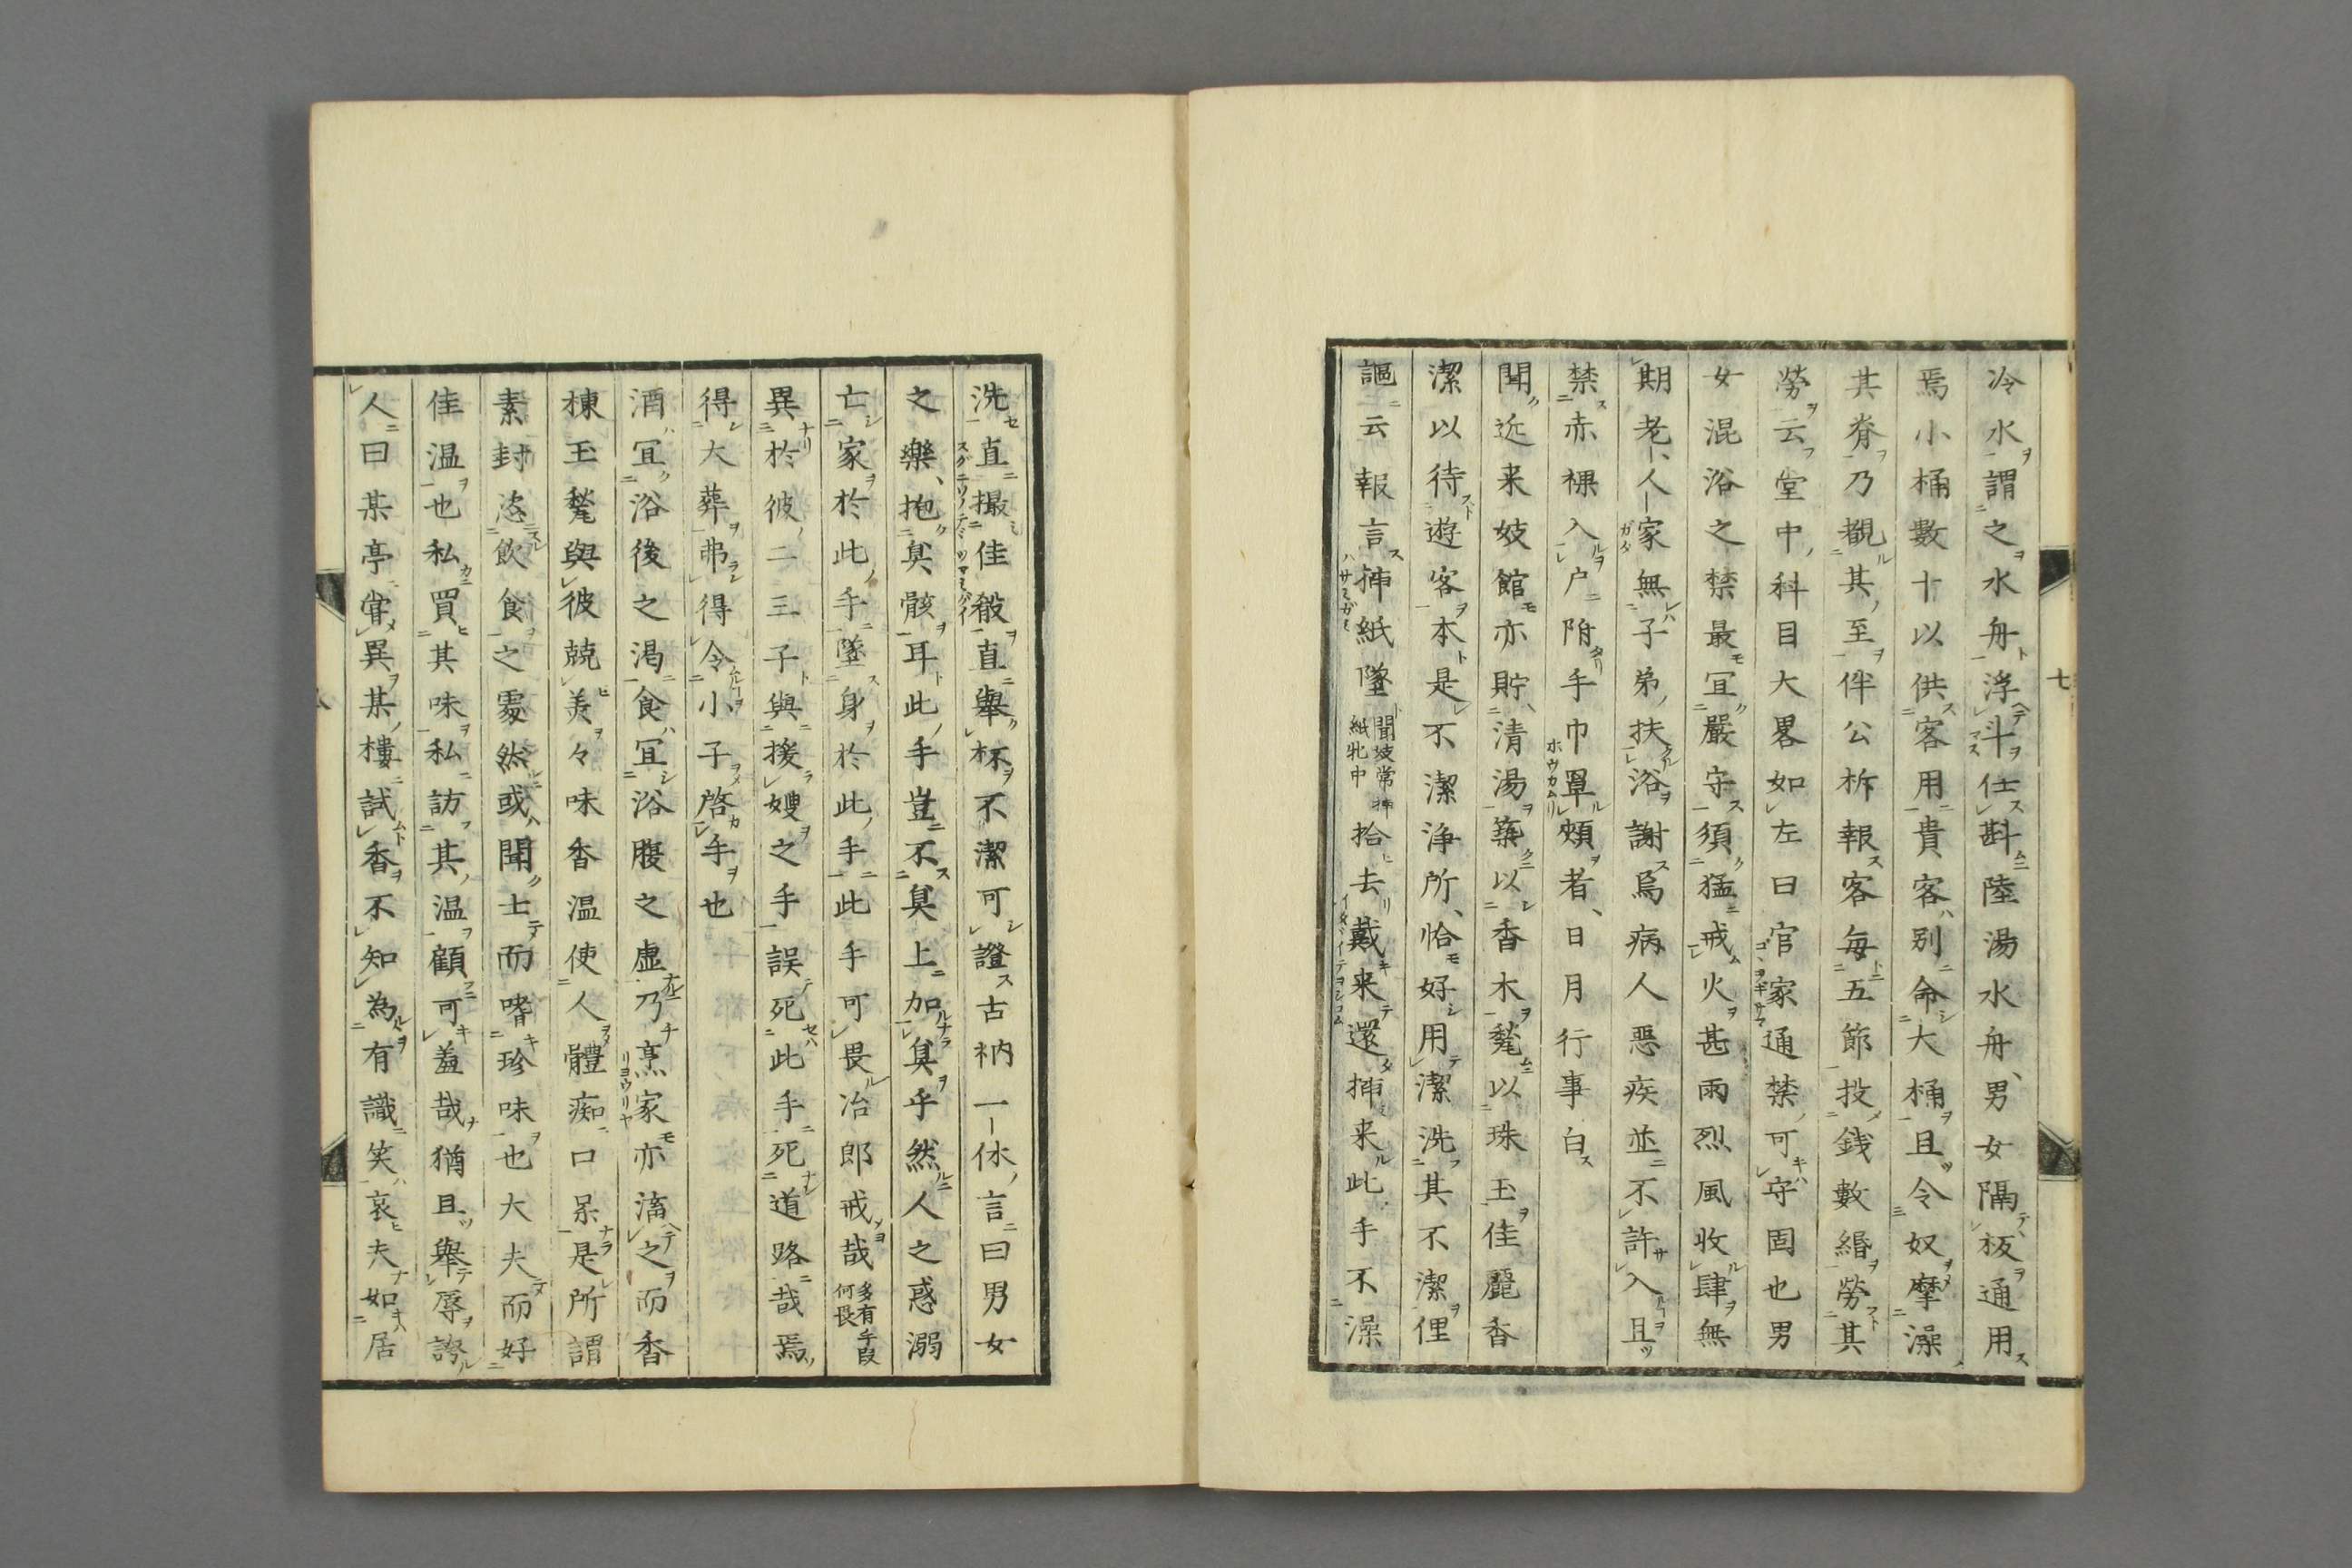 冷水謂之水舟浮斗仕斟陸湯水舟男女隔板通用
焉小桶數十以供客用貴客別命大桶且令奴摩澡
其脊乃覩其至伴公柝報客毎五節投銭數緡勞其
勞云堂中科目大畧如左曰官家通禁可守固也男
女混浴之禁最冝嚴守須猛戒火甚雨烈風收肆無
期老人家無子弟扶浴謝焉病人惡疾並不許入且
禁赤裸入戸附手巾罩頰者日月行事白
聞近来妓館亦貯清湯築以香木甃以珠玉佳麗香
潔以待遊客本是不潔浄所恰好用潔洗其不潔俚
謳云報言挿紙墜聞妓常挿紙牝中拾去戴来還挿来此手不澡
洗直撮佳殽直舉杯不潔可證古衲一休言曰男女
之樂抱臭骸耳此手豈不臭上加臭乎然人之惑溺
亡家於此手墜身於此手此手可畏冶郎戒哉多有手段何長
異於彼二三子與援嫂之手誤死此手死道路哉焉
得大葬弗得令小子啓手也
酒冝浴後之渇食冝浴腹之虚乃烹家亦滀之而香
棟玉甃與彼兢美々味香温使人體痴口呆是所謂
素封恣飲食之䖏然或聞士而嗜珍味也大夫而好
佳温也私買其味私訪其温顧可羞哉猶且舉辱誇
人曰某亭甞異某樓試香不知為有識笑哀夫如居
七